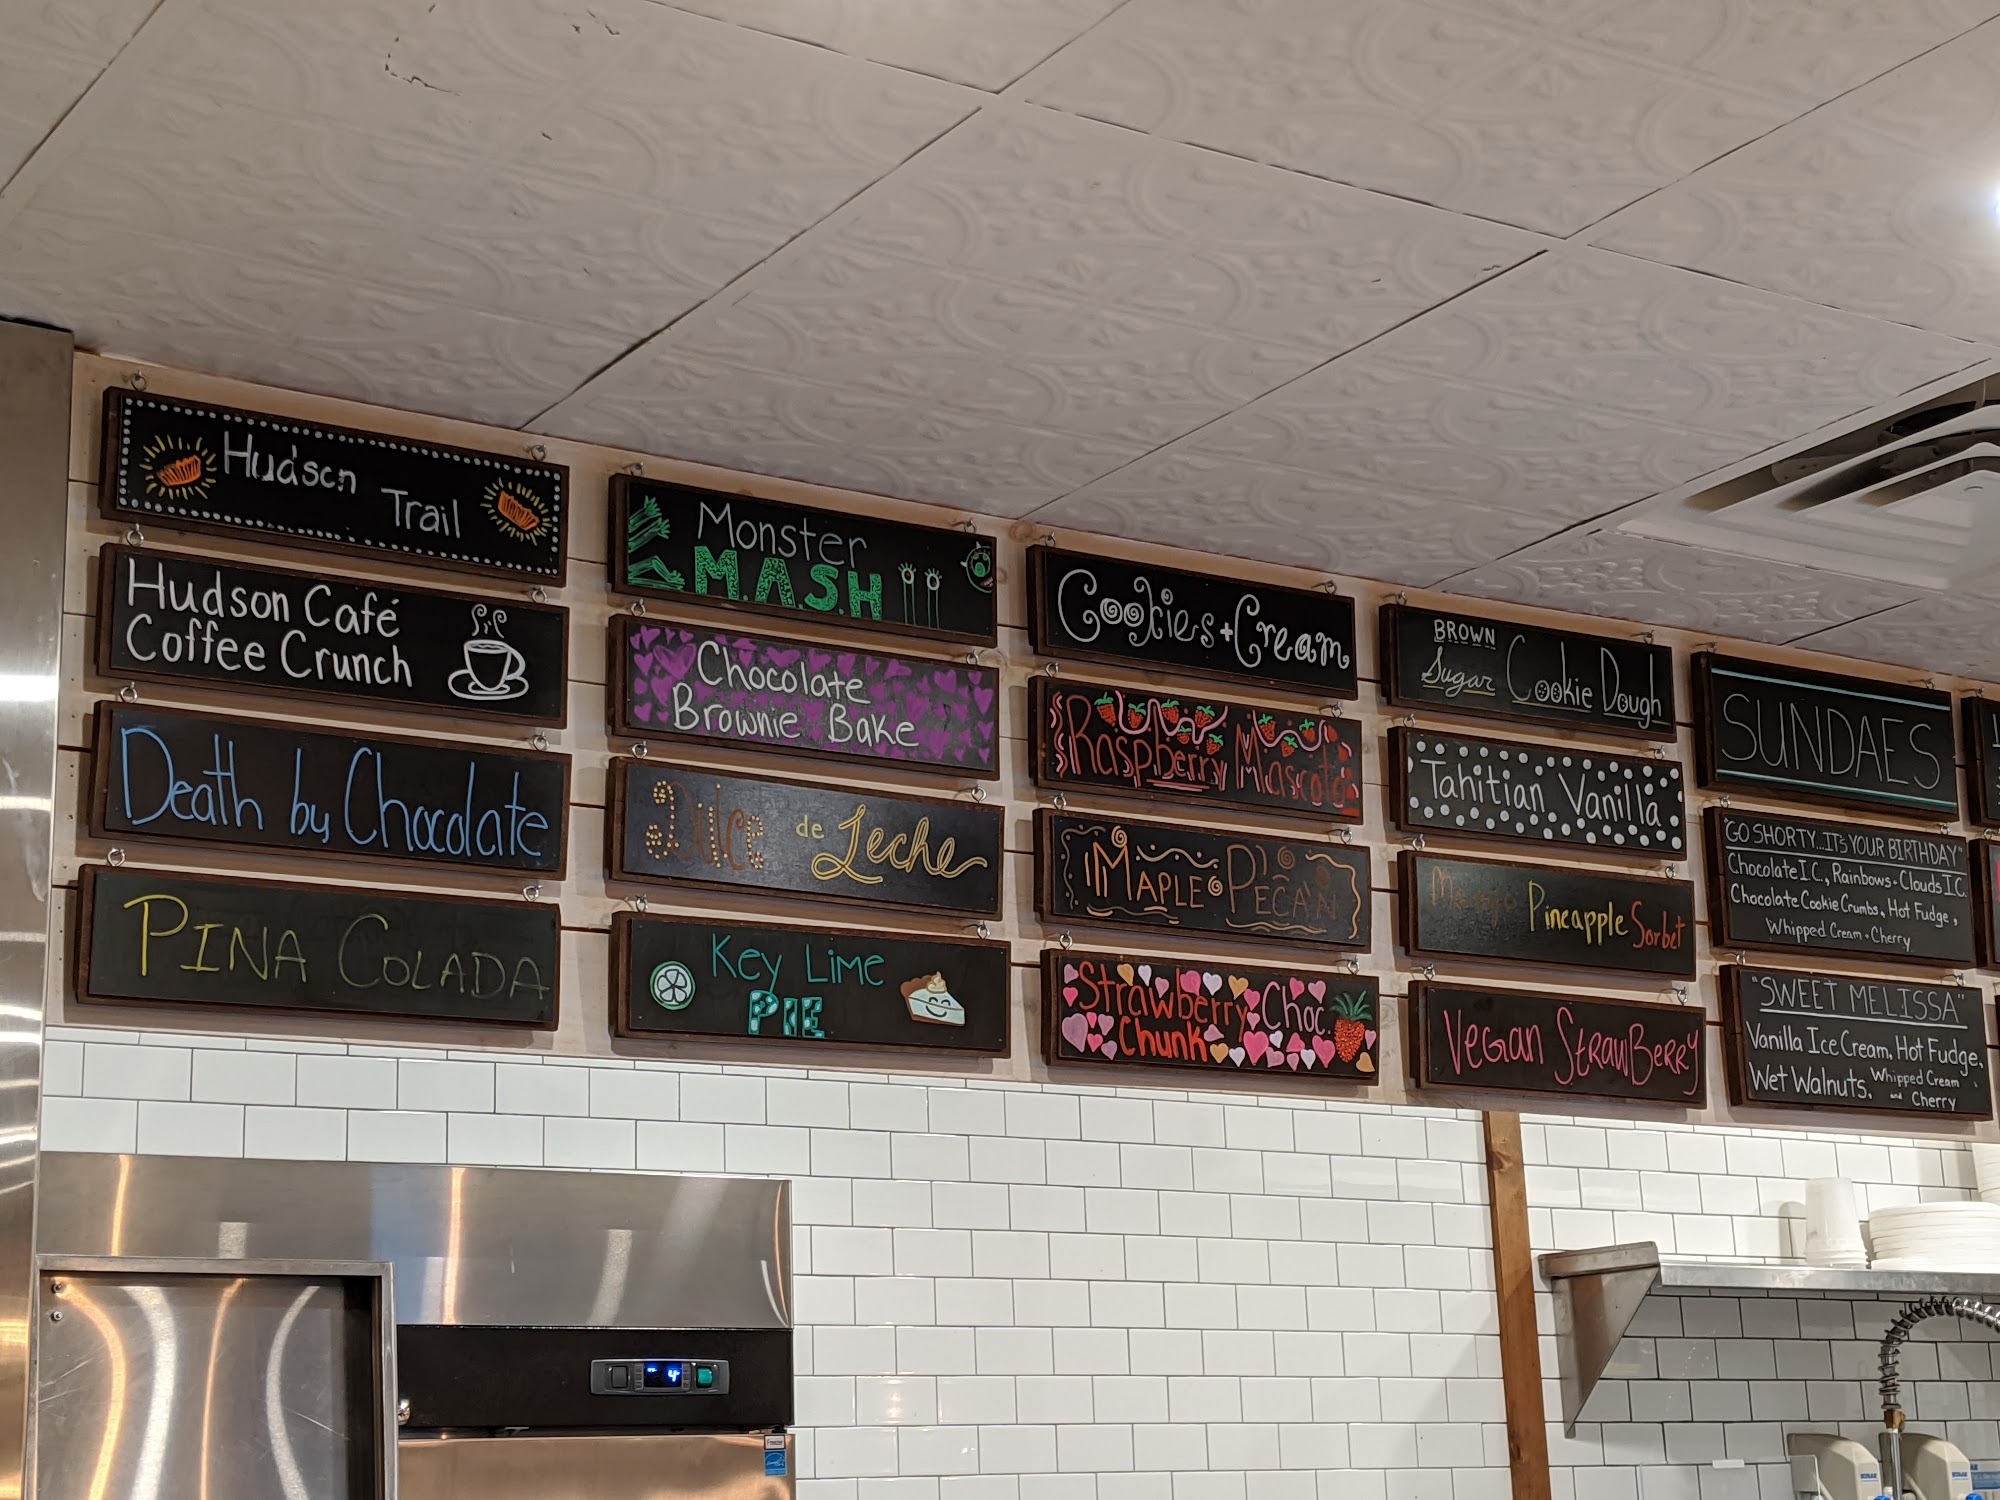 Hudson
Trail
Hudson Café
Coffee Crunch
Death by Chocolate
PINA COLADA
Monster
M.A.S.H
Chocolate
Brownie Bake
Dulce de Leche
Key Lime
PIE
Cookies + Cream
Raspberry Mascota
MAPLE PECAN
Strawberry Choc.
Chunk
BROWN
Sugar Cookie Dough
Tahitian Vanilla
Mango Pineapple Sorbet
VEGAN STRAWBERRY
SUNDAES
"GO SHORTY...IT'S YOUR BIRTHDAY"
Chocolate I.C., Rainbows + Clouds I.C.
Chocolate Cookie Crumbs, Hot Fudge,
Whipped Cream + Cherry
"SWEET MELISSA"
Vanilla Ice Cream, Hot Fudge,
Wet Walnuts, Whipped Cream
and Cherry